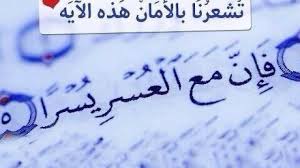 تشعرنا بالأمان هذه الآيه
فَإِنَّ مَعَ الْعُسْرِ يُسْرًا ٥